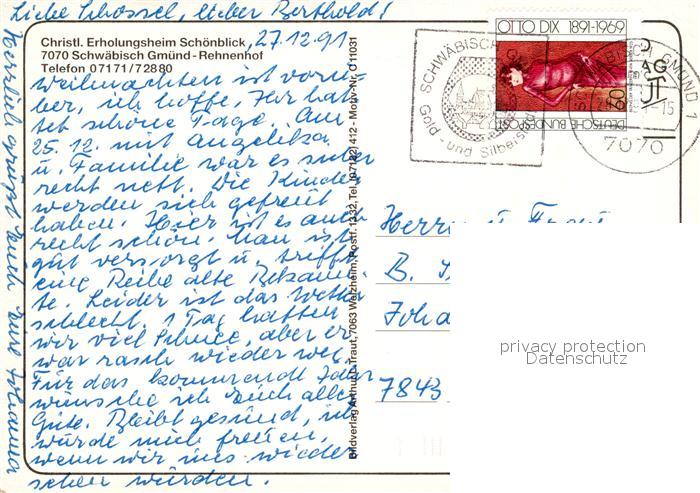 Liebe Schossel, lieber Berthold!
27.12.91
Christl. Erholungsheim Schönblick
7070 Schwäbisch Gmünd - Rehnenhof
Telefon 07171/72880
Weihnachten ist vorü-
ber, ich hoffe, Ihr hat-
tet schöne Tage. Am
25.12. mit Angelika
u. Familie war es
recht nett. Die Kinder
werden sich gefreut
haben. Hier ist es auch
recht schön. Man ist
gut versorgt u. trifft
eine Reihe alte Bekann-
te. Leider ist das Wetter
schlecht. 1 Tag hatten
wir viel Schnee, aber er
war rasch wieder weg.
Für das kommende Jahr
wünsche ich Euch alles
Gute. Bleibt gesund, ich
würde mich freuen,
wenn wir uns wieder
sehen würden.
Herzlich grüßt Euch Eure Johanna
Bildverlag Arthur Traut, 7063 Welzheim, Postf. 1332, Tel. (07182) 412 - Motiv-Nr. O 11031
OTTO DIX 1891-1969
60
DEUTSCHE BUNDESPOST
SCHWÄBISCH
Gold - und Silberstadt
SCHWÄBISCH GMÜND 1
-15
7070
Herrn u. Frau
B.
Joha
7843
privacy protection
Datenschutz